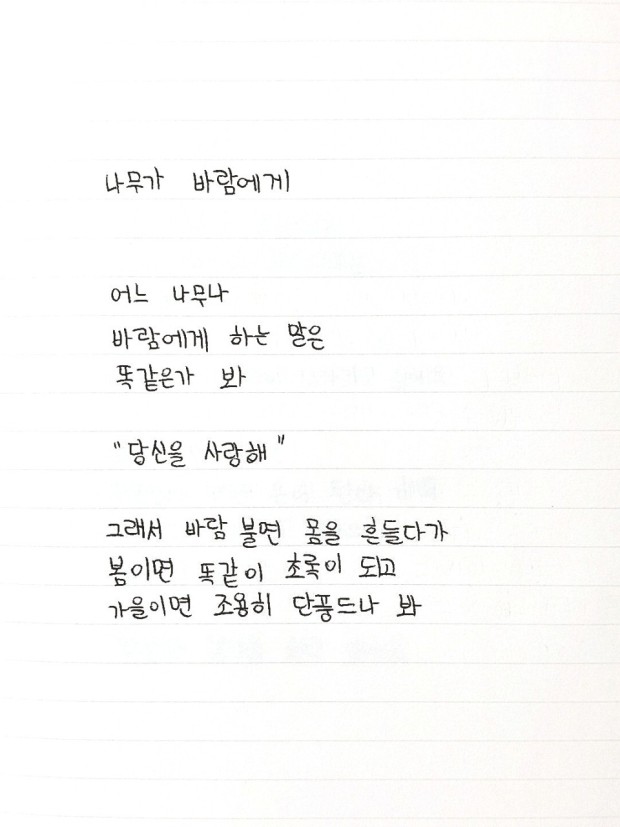 나무가 바람에게
어느 나무나
바람에게 하는 말은
똑같은가 봐
"당신을 사랑해"
그래서 바람 불면 몸을 흔들다가
봄이면 똑같이 초록이 되고
가을이면 조용히 단풍드나 봐